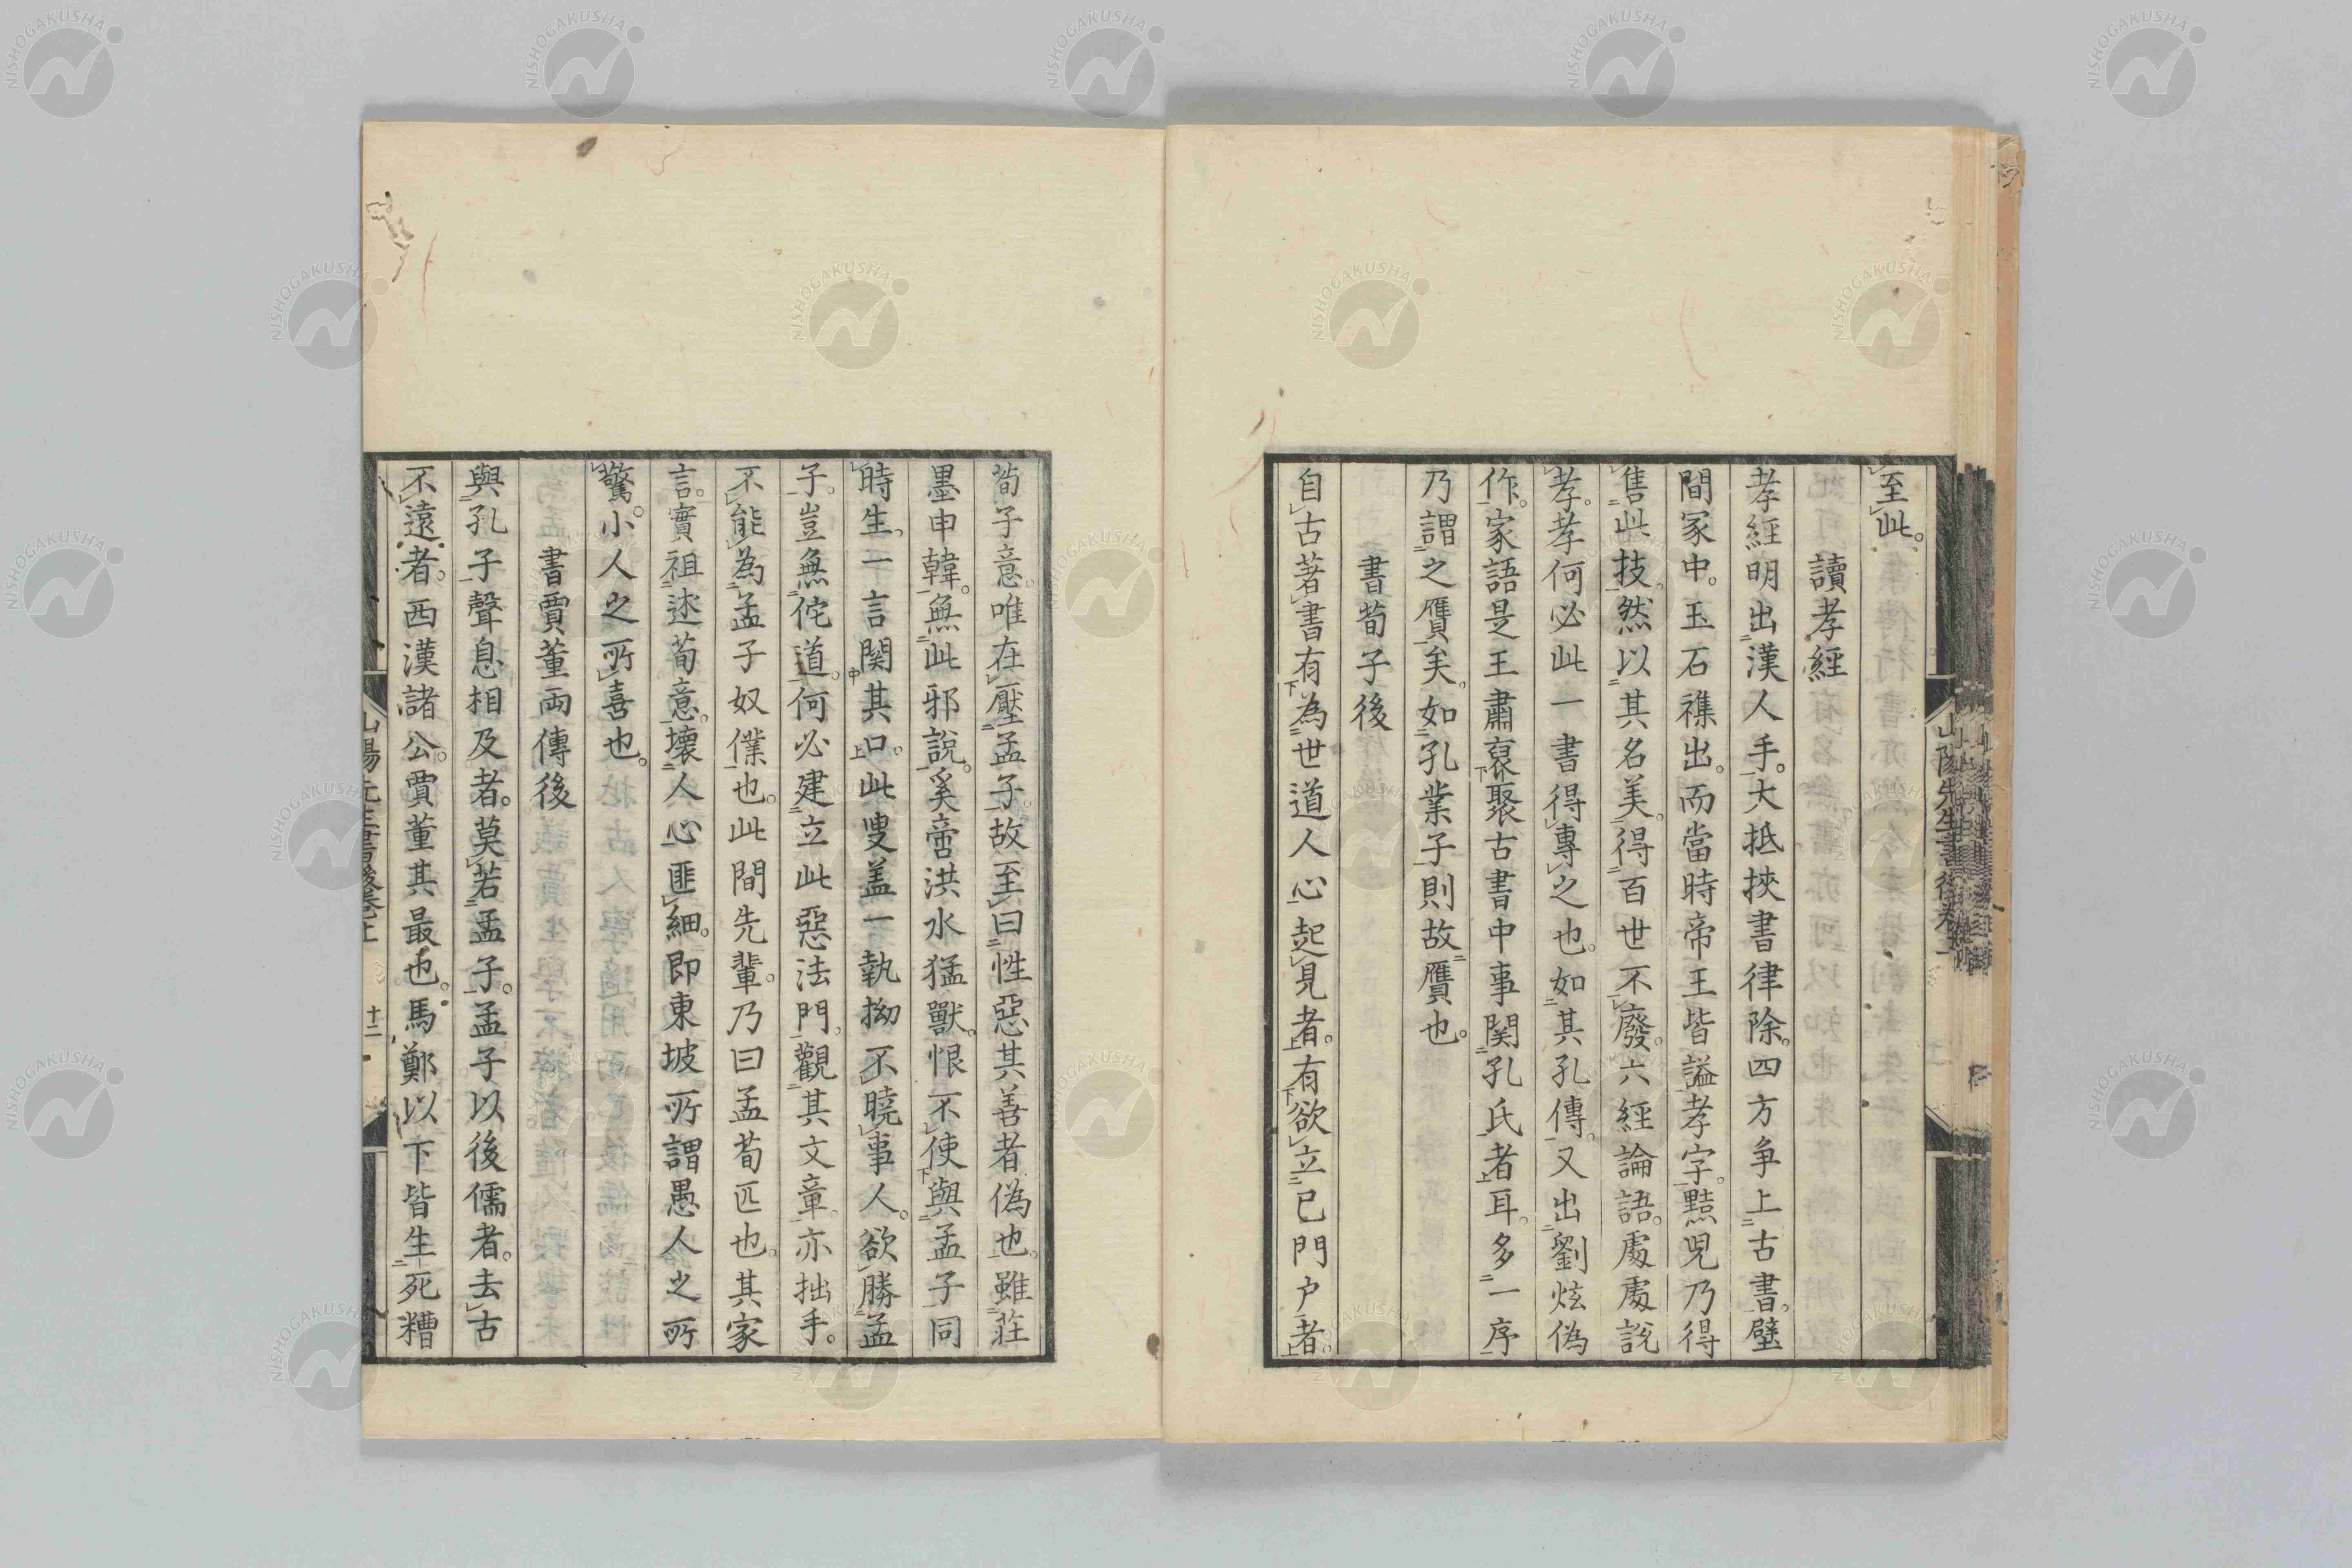 至此。
讀孝經
孝經明出漢人手。大抵挾書律除。四方争上古書。壁
間冢中。玉石襍出。而當時帝王皆謚孝字。黠児乃得
售此技。然以其名美。得百世不廢。六經論語。處處說
孝。孝何必此一書得專之也。如其孔傳。又出劉炫偽
作。家語是王肅裒聚古書中事関孔氏者耳。多一序
乃謂之贋矣。如孔業子則故贋也。
書荀子後
自古著書有為世道人心起見者。有欲立己門户者。
山陽先生書後卷上
荀子意。唯在壓孟子。故至曰性惡其善者偽也。雖莊
墨申韓。無此邪說。奚啻洪水猛獸。恨不使與孟子同
時生。一言関其口。此叟盖一執拗不曉事人。欲勝孟
子。豈無佗道。何必建立此惡法門。觀其文章。亦拙手。
不能為孟子奴僕也。此間先輩。乃曰孟荀匹也。其家
言。實祖述荀意。壊人心匪細。即東坡所謂愚人之所
驚。小人之所喜也。
書賈董両傳後
與孔子聲息相及者。莫若孟子。孟子以後儒者。去古
不遠者。西漢諸公。賈董其最也。馬鄭以下皆生死糟
山陽先生書後卷上 十二
NISHOGAKUSHA